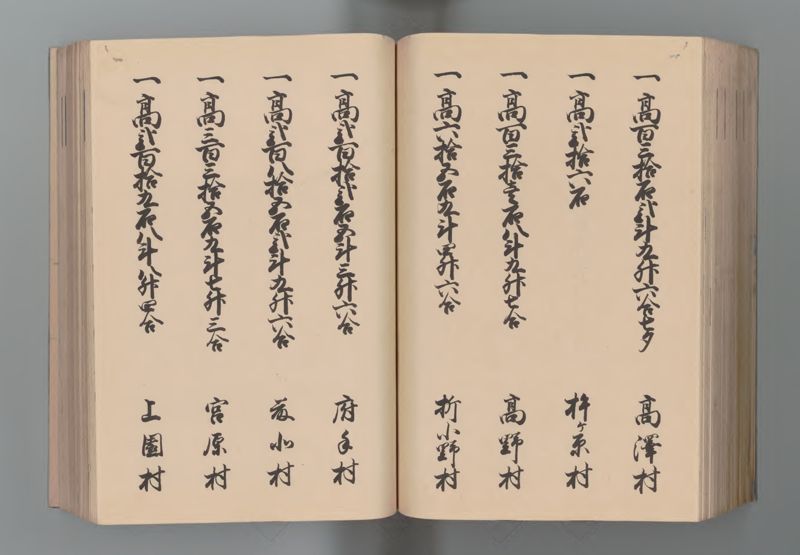 一高百三拾石弐斗九升六合七夕 高澤村
一高弐拾六石 杵ヶ原村
一高百三拾壱石八斗九升七合 高野村
一高六拾五石九斗四升六合 折小野村
一高弐百拾弐石五斗三升六合 府本村
一高弐百八拾五石弐斗九升六合 村
一高三百三拾五石九斗七升三合 宮原村
一高弐百拾九石八斗八升四合 上園村